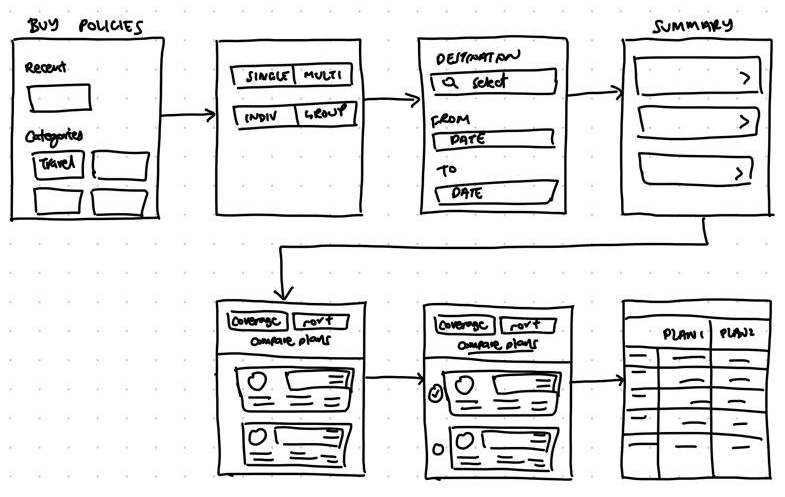 BUY POLICIES
Recent
Categories
Travel
SINGLE MULTI
INDIV GROUP
DESTINATION
select
FROM
DATE
TO
DATE
SUMMARY
Coverage sort
compare plans
Coverage sort
compare plans
PLAN1 PLAN2